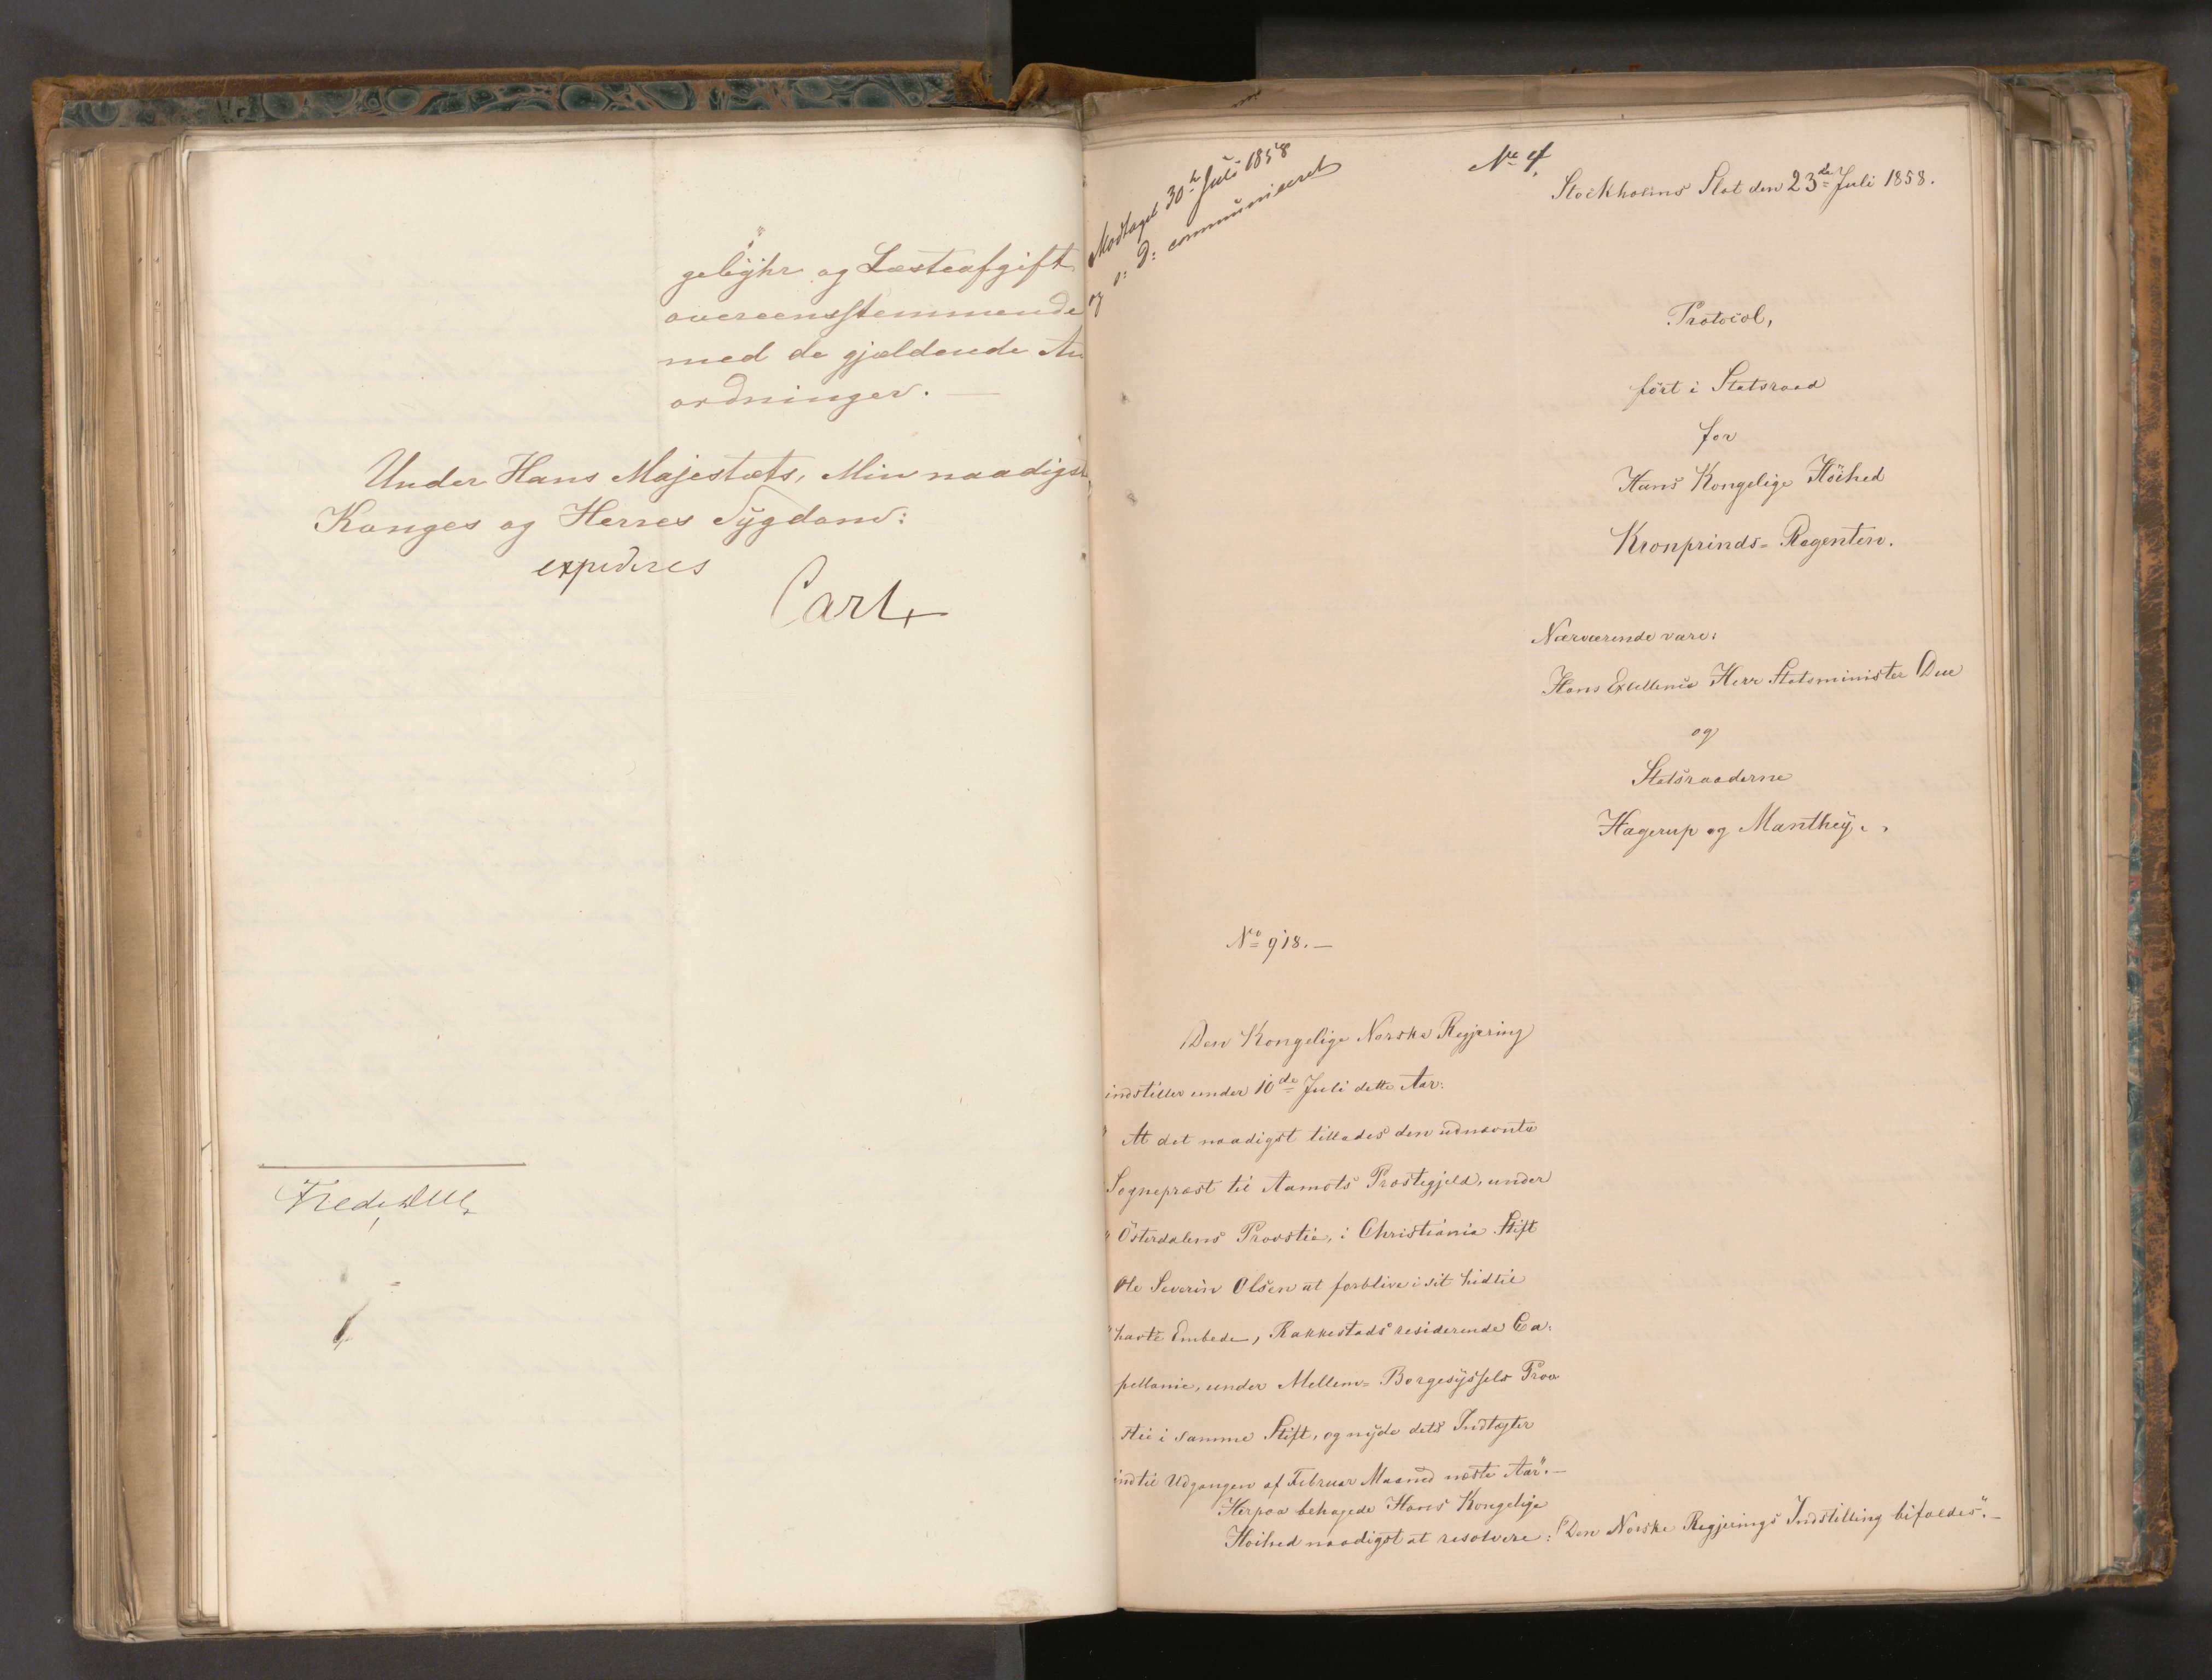 gebÿhr og Læsteafgift
overeensstemmende
med de gjældende An
ordninger. —
Under Hans Majestæts, Min naadigste
Konges og Herres Sygdom:
expederes
Carl
Fred. Due
Modtaget 30te Juli 1858
og s: D: communiceret
No 4.
Stockholms Slot den 23de Juli 1858.
Protocol,
ført i Statsraad
for
Hans Kongelige Höihed
Kronprinds-Regenten.
Nærværende vare:
Hans Excellence Herr Statsminister Due
og
Statsraaderne
Hagerup og Manthey.
No 918. —
Den Kongelige Norske Regjering
indstiller under 10de Juli dette Aar:
" At det naadigst tillades den udnævnte
Sognepræst til Aamots Præstegjeld, under
" Österdalens Provstie, i Christiania Stift
Ole Severin Olsen at forblive i sit hidtil
" havte Embede, Rakkestads residerende Ca:
pellanie, under Mellem-Borgesÿssels Prov
stie i samme Stift, og nÿde dets Indtægter
indtil Udgangen af Februar Maaned næste Aar". —
Herpaa behagede Hans Kongelige
Höihed naadigst at resolvere: "Den Norske Regjerings Indstilling bifaldes". —